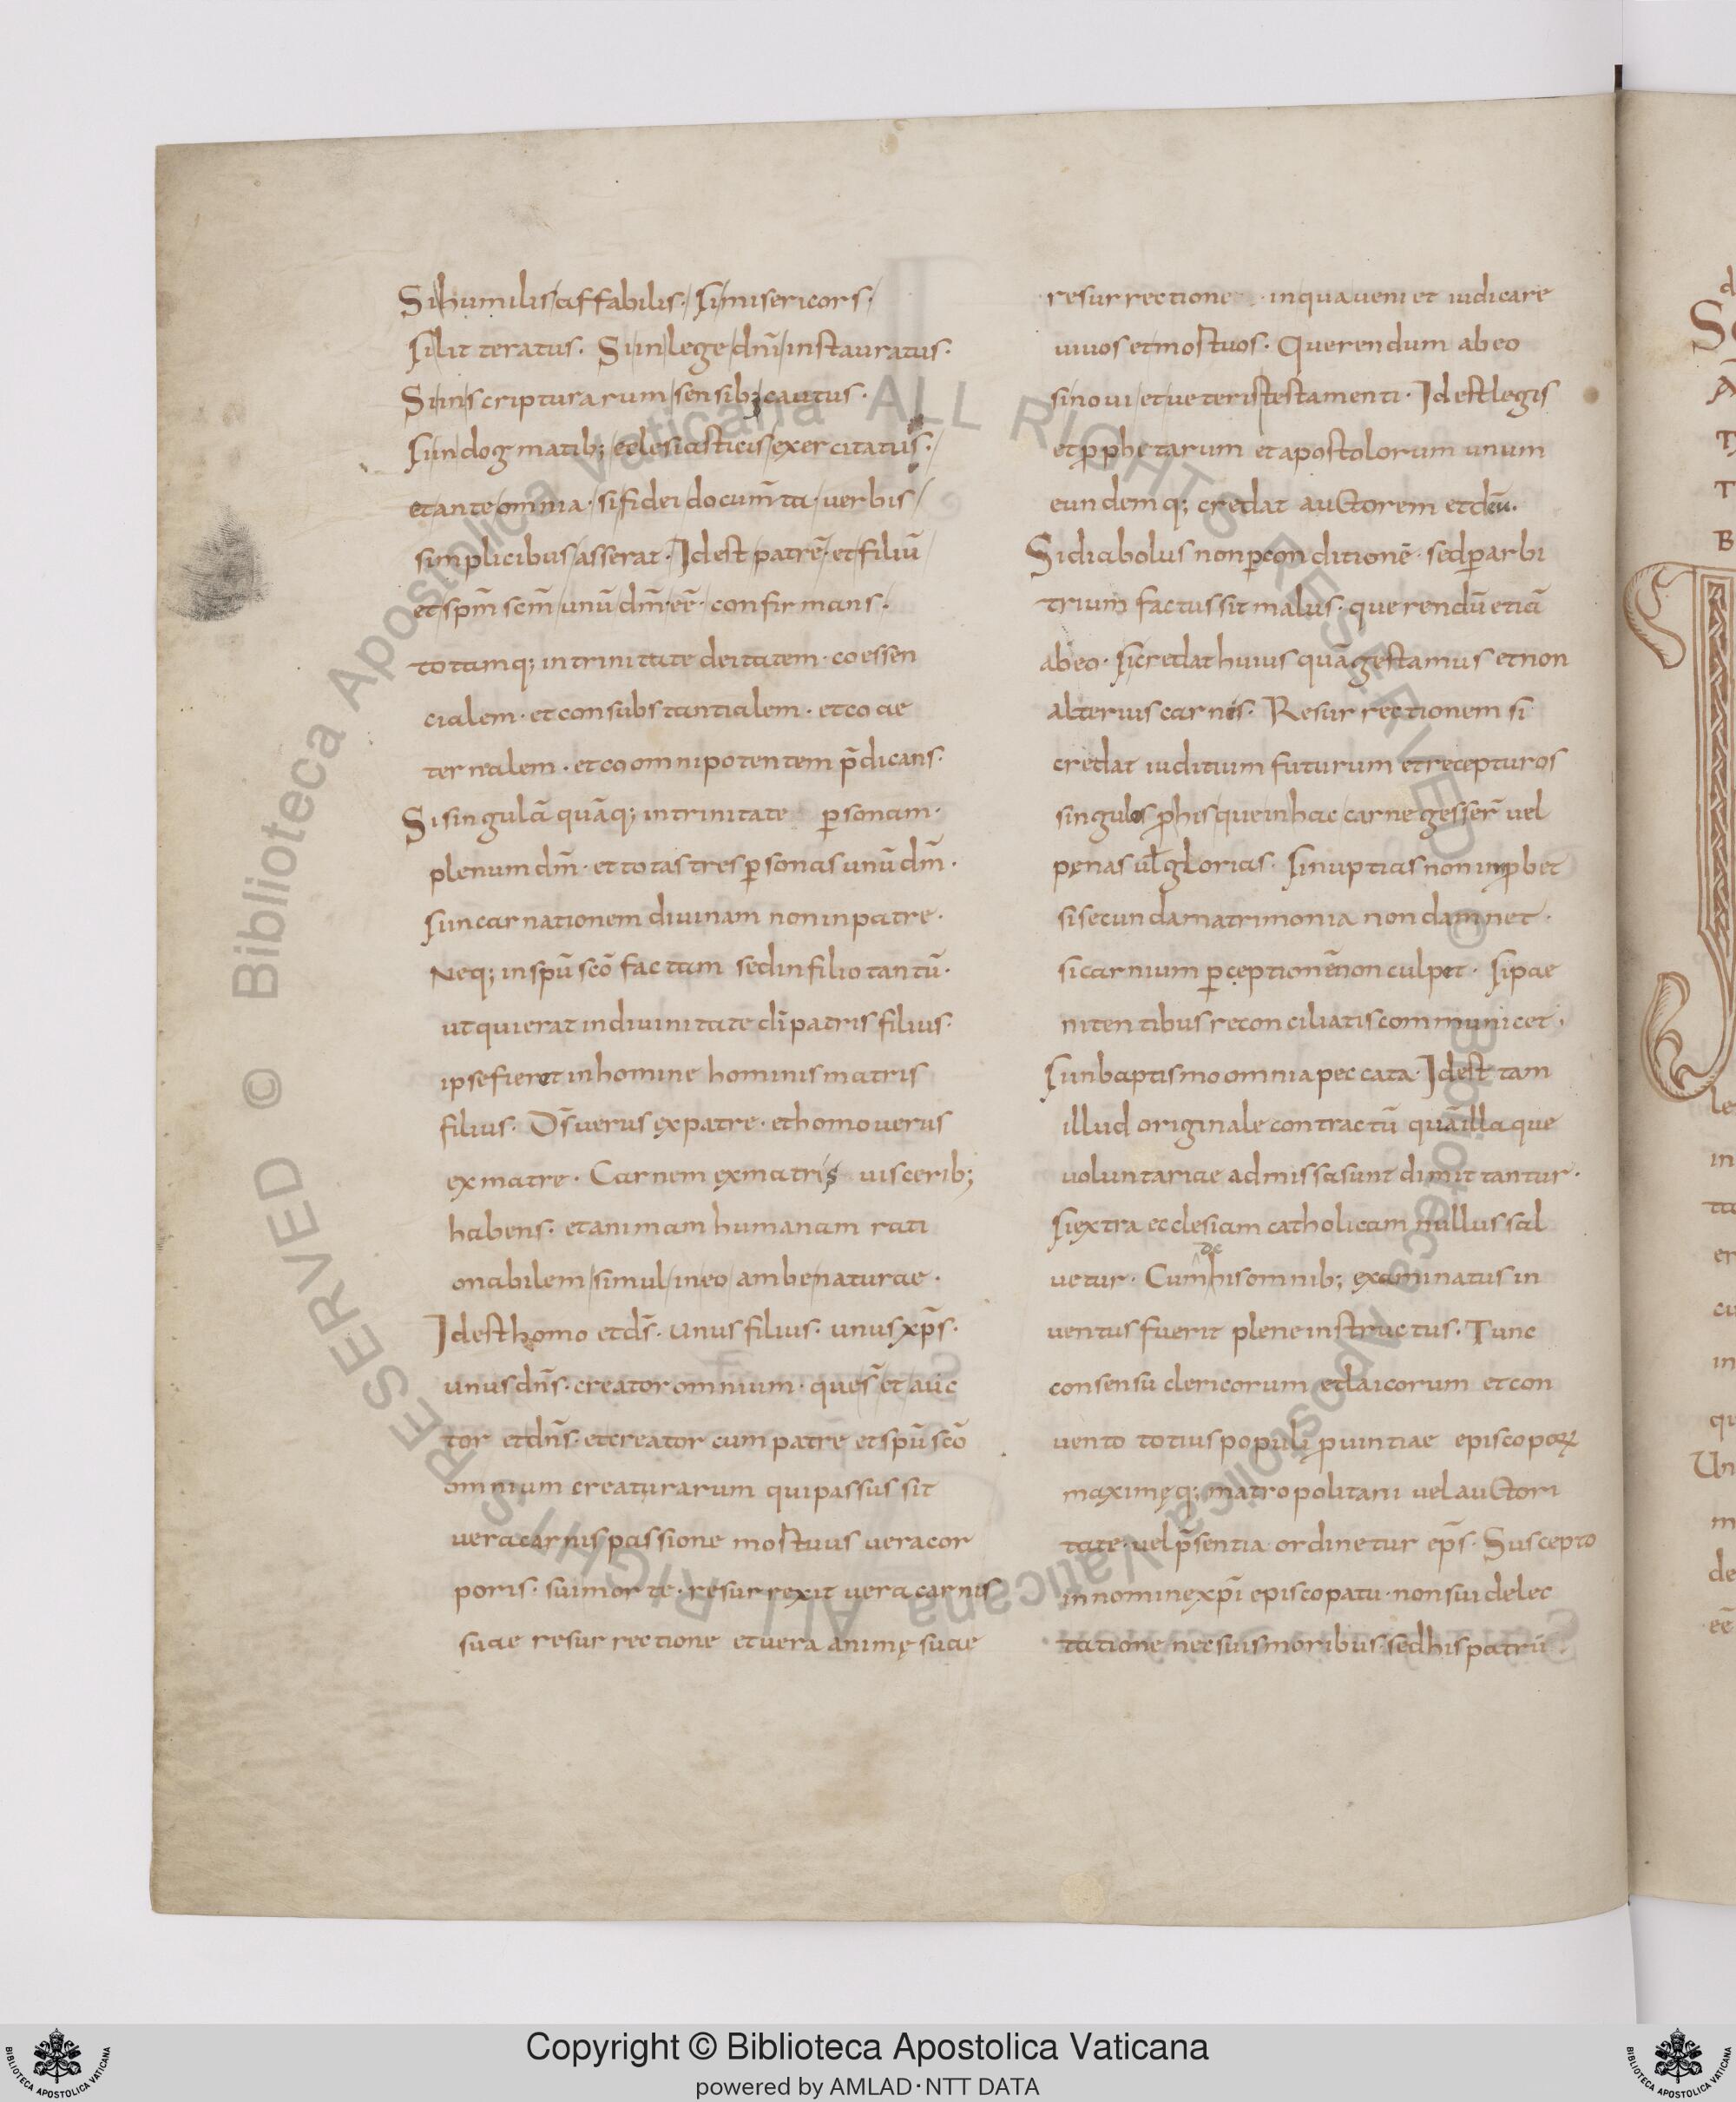 Si humilis affabilis · Si misericors ·
Si lit teratus · Si in lege dnī instauratus ·
Si in scripturarum sensib; cautus ·
Si in dogmatib; eclesiasticis exercitatus ·
et ante omnia · si fidei docum̄ta · verbis
simplicibus asserat · Id est patrē · et filiū
et spm̄ scm̄ unū dm̄ eē · confirmans ·
totamq; in trinitate deitatem · coessen
cialem · et consubstantialem · et coae
ternalem · et coomnipotentem p̄dicans ·
Si singulā quāq; in trinitate ꝑsonam ·
plenum dm̄ · et totas tres ꝑsonas unū dm̄ ·
Si incarnationem divinam non in patre ·
Neq; in spū scō factam sed in filio tantū ·
ut qui erat in divinitate dī patris filius ·
ipse fieret in homine hominis matris
filius · Ds̄ verus ex patre · et homo verus
ex matre · Carnem ex matris viscerib;
habens · et animam humanam rati
onabilem simul in eo ambe naturae ·
Id est homo et ds̄ · unus filius · unus xp̄s ·
unus dn̄s · creator omnium · ques̄ et auc
tor et dn̄s · et creator cum patre et spū scō
omnium creaturarum qui passus sit
vera carnis passione mortuus vera cor
poris · sui morte · resurrexit vera carnis
suae resurrectione et vera animę suae
resurrectione · in qua veniet iudicare
vivos et mortuos · Querendum ab eo
si novi et veteris testamenti · Id est legis
et ꝓphetarum et apostolorum unum
eundemq; credat auctorem et deū.
Si diabolus non ꝑ conditionē · sed ꝑ arbi
trium factus sit malus · querendū etiā
ab eo · Si credat huius quā gestamus et non
alterius carnis · Resurrectionem si
credat iuditium futurum et recepturos
singulos ꝓ his que in hac carne gesser̄ vel
pęnas ul̄ glorias · Si nuptias non inꝓbet
si secunda matrimonia non damnet ·
si carnium ꝑceptionē non culpet · Si pae
nitentibus reconciliatis communicet ·
Si in baptismo omnia peccata · Id est tam
illud originale contractū quā illa que
voluntariae admissa sunt dimittantur ·
Si extra ecclesiam catholicam nullus sal
de
vetur · Cum his omnib; examinatus in
ventus fuerit plene instructus · Tunc
consensu clericorum et laicorum et con
vento totius populi ꝓvintiae episcopoꝝ
maximęq; matropolitani vel auctori
tate · vel p̄sentia ordinetur ep̄s · Suscepto
in nomine xp̄i episcopatu · non sui delec
tatione nec suis moribus · sed his patrū ·
Copyright © Biblioteca Apostolica Vaticana
powered by AMLAD·NTT DATA